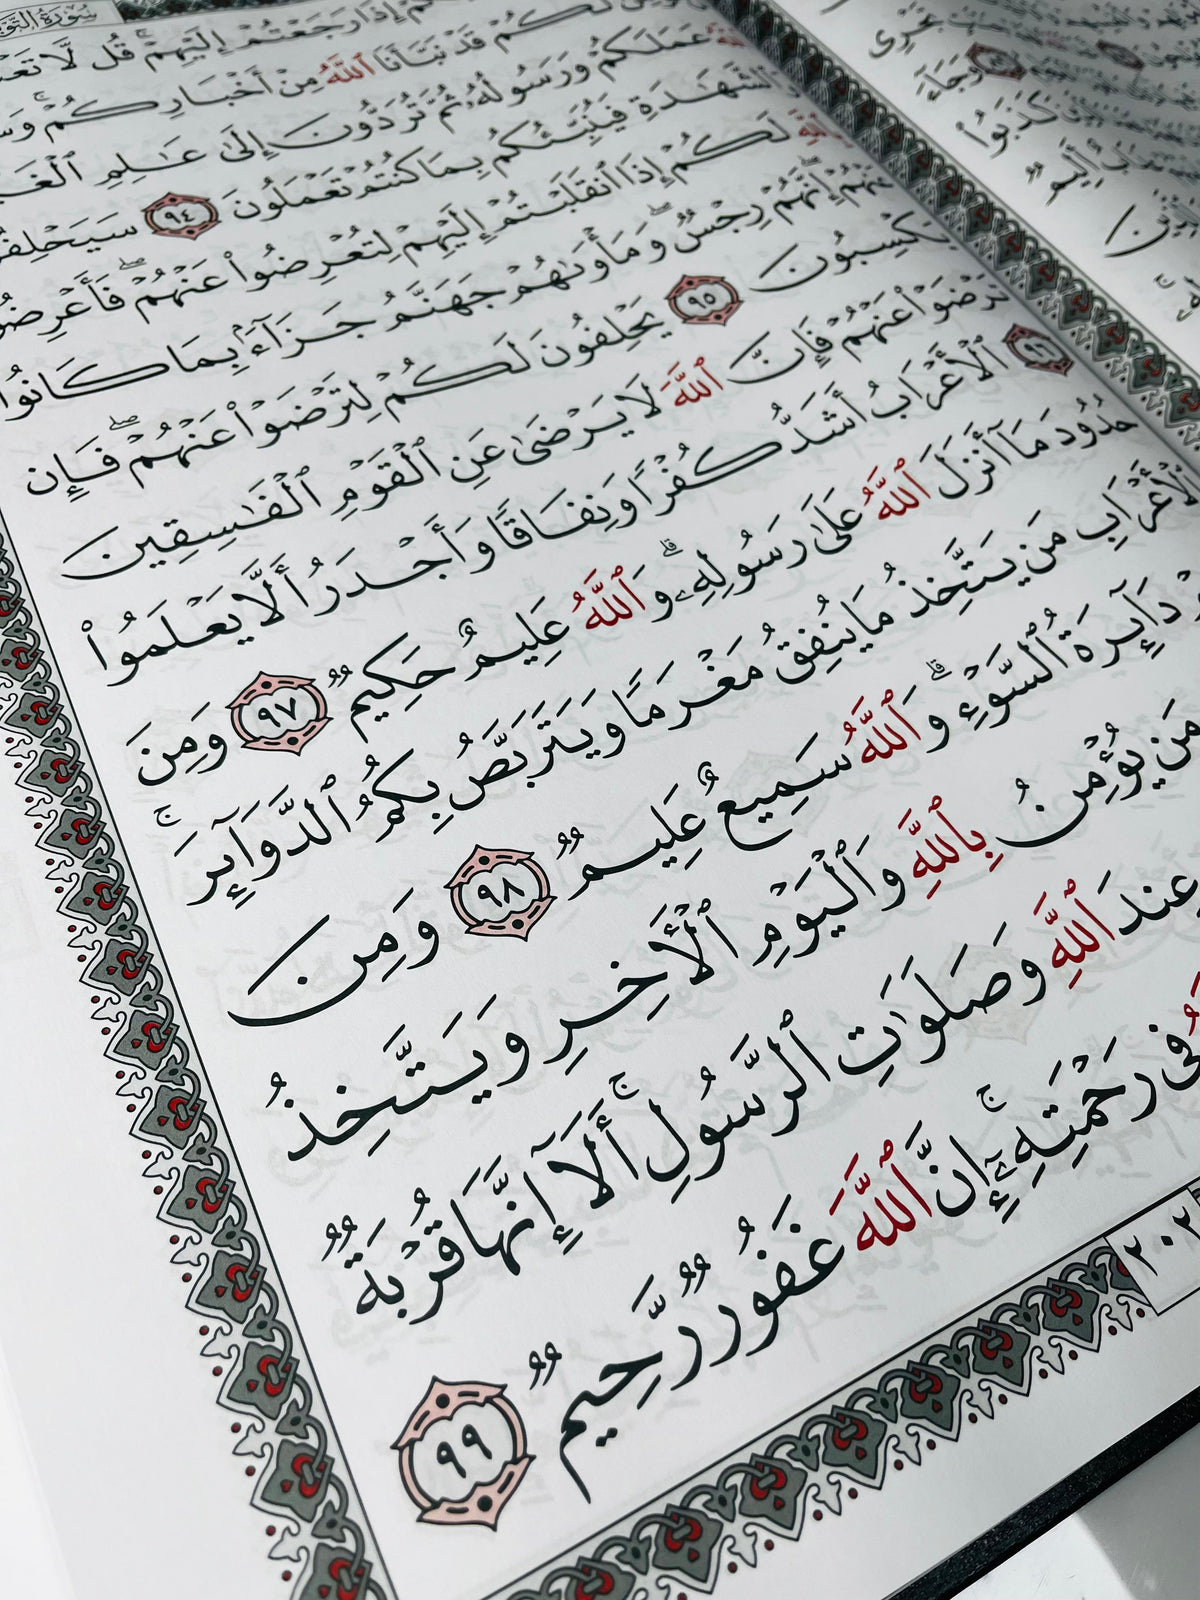 سُورَةُ التَّوْبَةِ
إِذَا رَجَعْتُمْ إِلَيْهِمْ ۚ قُل لَّا
لَكُمْ قَدْ نَبَّأَنَا ٱللَّهُ مِنْ أَخْبَارِكُمْ ۚ
عَمَلَكُمْ وَرَسُولُهُۥ ثُمَّ تُرَدُّونَ إِلَىٰ عَـٰلِمِ
وَٱلشَّهَـٰدَةِ فَيُنَبِّئُكُم بِمَا كُنتُمْ تَعْمَلُونَ ٩٤
لَكُمْ إِذَا ٱنقَلَبْتُمْ إِلَيْهِمْ لِتُعْرِضُوا۟ عَنْهُمْ ۖ
إِنَّهُمْ رِجْسٌ ۖ وَمَأْوَىٰهُمْ جَهَنَّمُ جَزَآءًۢ بِمَا كَانُوا۟
يَكْسِبُونَ ٩٥ يَحْلِفُونَ لَكُمْ لِتَرْضَوْا۟ عَنْهُمْ ۖ فَإِن
تَرْضَوْا۟ عَنْهُمْ فَإِنَّ ٱللَّهَ لَا يَرْضَىٰ عَنِ ٱلْقَوْمِ ٱلْفَـٰسِقِينَ
٩٦ ٱلْأَعْرَابُ أَشَدُّ كُفْرًا وَنِفَاقًا وَأَجْدَرُ أَلَّا يَعْلَمُوا۟
حُدُودَ مَآ أَنزَلَ ٱللَّهُ عَلَىٰ رَسُولِهِۦ ۗ وَٱللَّهُ عَلِيمٌ حَكِيمٌ ٩٧ وَمِنَ
ٱلْأَعْرَابِ مَن يَتَّخِذُ مَا يُنفِقُ مَغْرَمًا وَيَتَرَبَّصُ بِكُمُ ٱلدَّوَآئِرَ ۚ
دَآئِرَةُ ٱلسَّوْءِ ۗ وَٱللَّهُ سَمِيعٌ عَلِيمٌ ٩٨ وَمِنَ
مَن يُؤْمِنُ بِٱللَّهِ وَٱلْيَوْمِ ٱلْـَٔاخِرِ وَيَتَّخِذُ
عِندَ ٱللَّهِ وَصَلَوَٰتِ ٱلرَّسُولِ ۚ أَلَآ إِنَّهَا قُرْبَةٌ
فِى رَحْمَتِهِۦٓ ۚ إِنَّ ٱللَّهَ غَفُورٌ رَّحِيمٌ ٩٩
٢٠٢